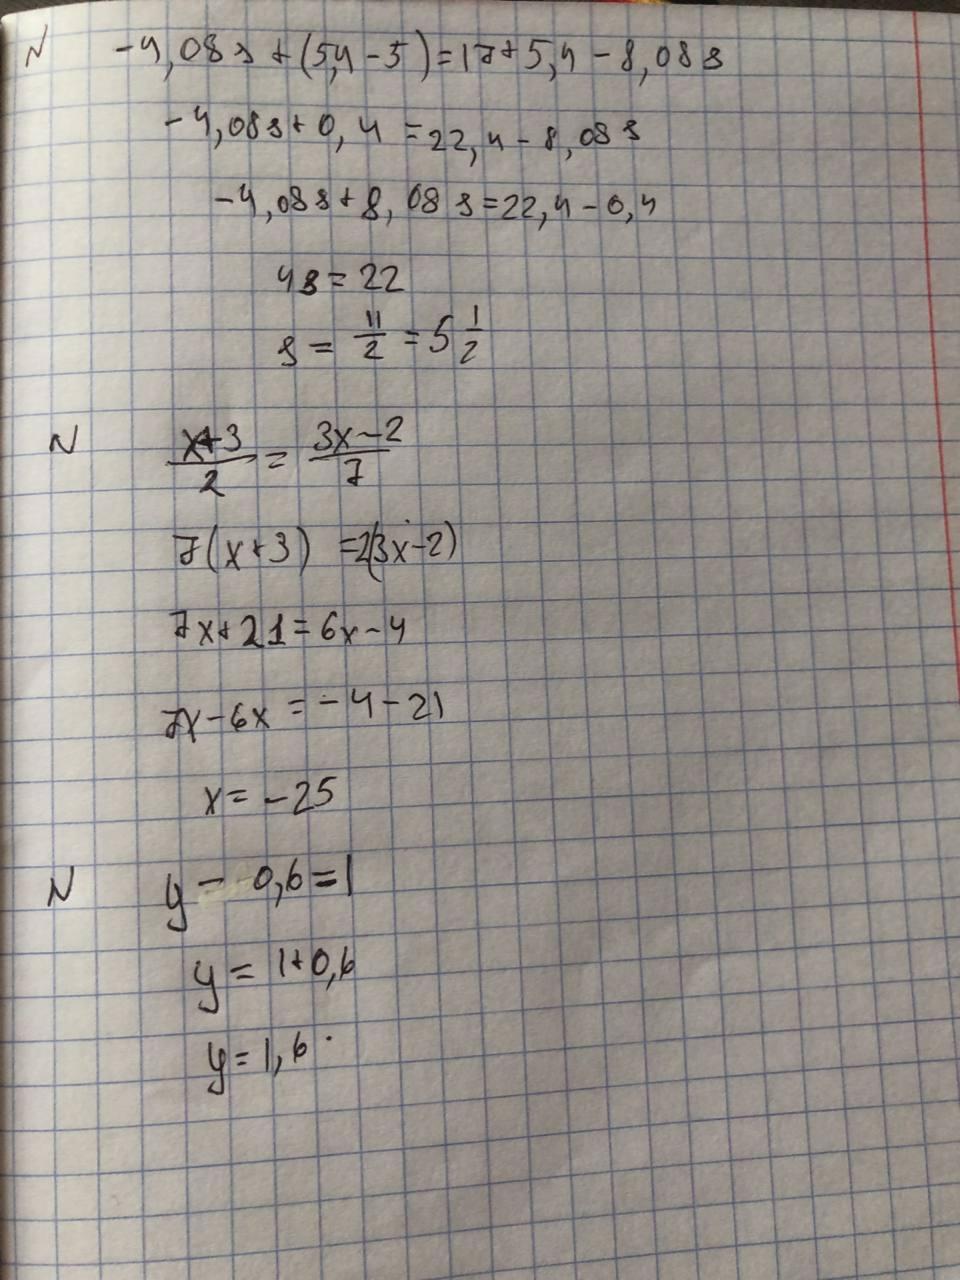 N -4,08s+(5,4-5)=17+5,4-8,08s
-4,08s+0,4=22,4-8,08s
-4,08s+8,08s=22,4-0,4
4s=22
s=11/2=5 1/2
N (x+3)/2=(3x-2)/7
7(x+3)=2(3x-2)
7x+21=6x-4
7x-6x=-4-21
x=-25
N y-0,6=1
y=1+0,6
y=1,6.